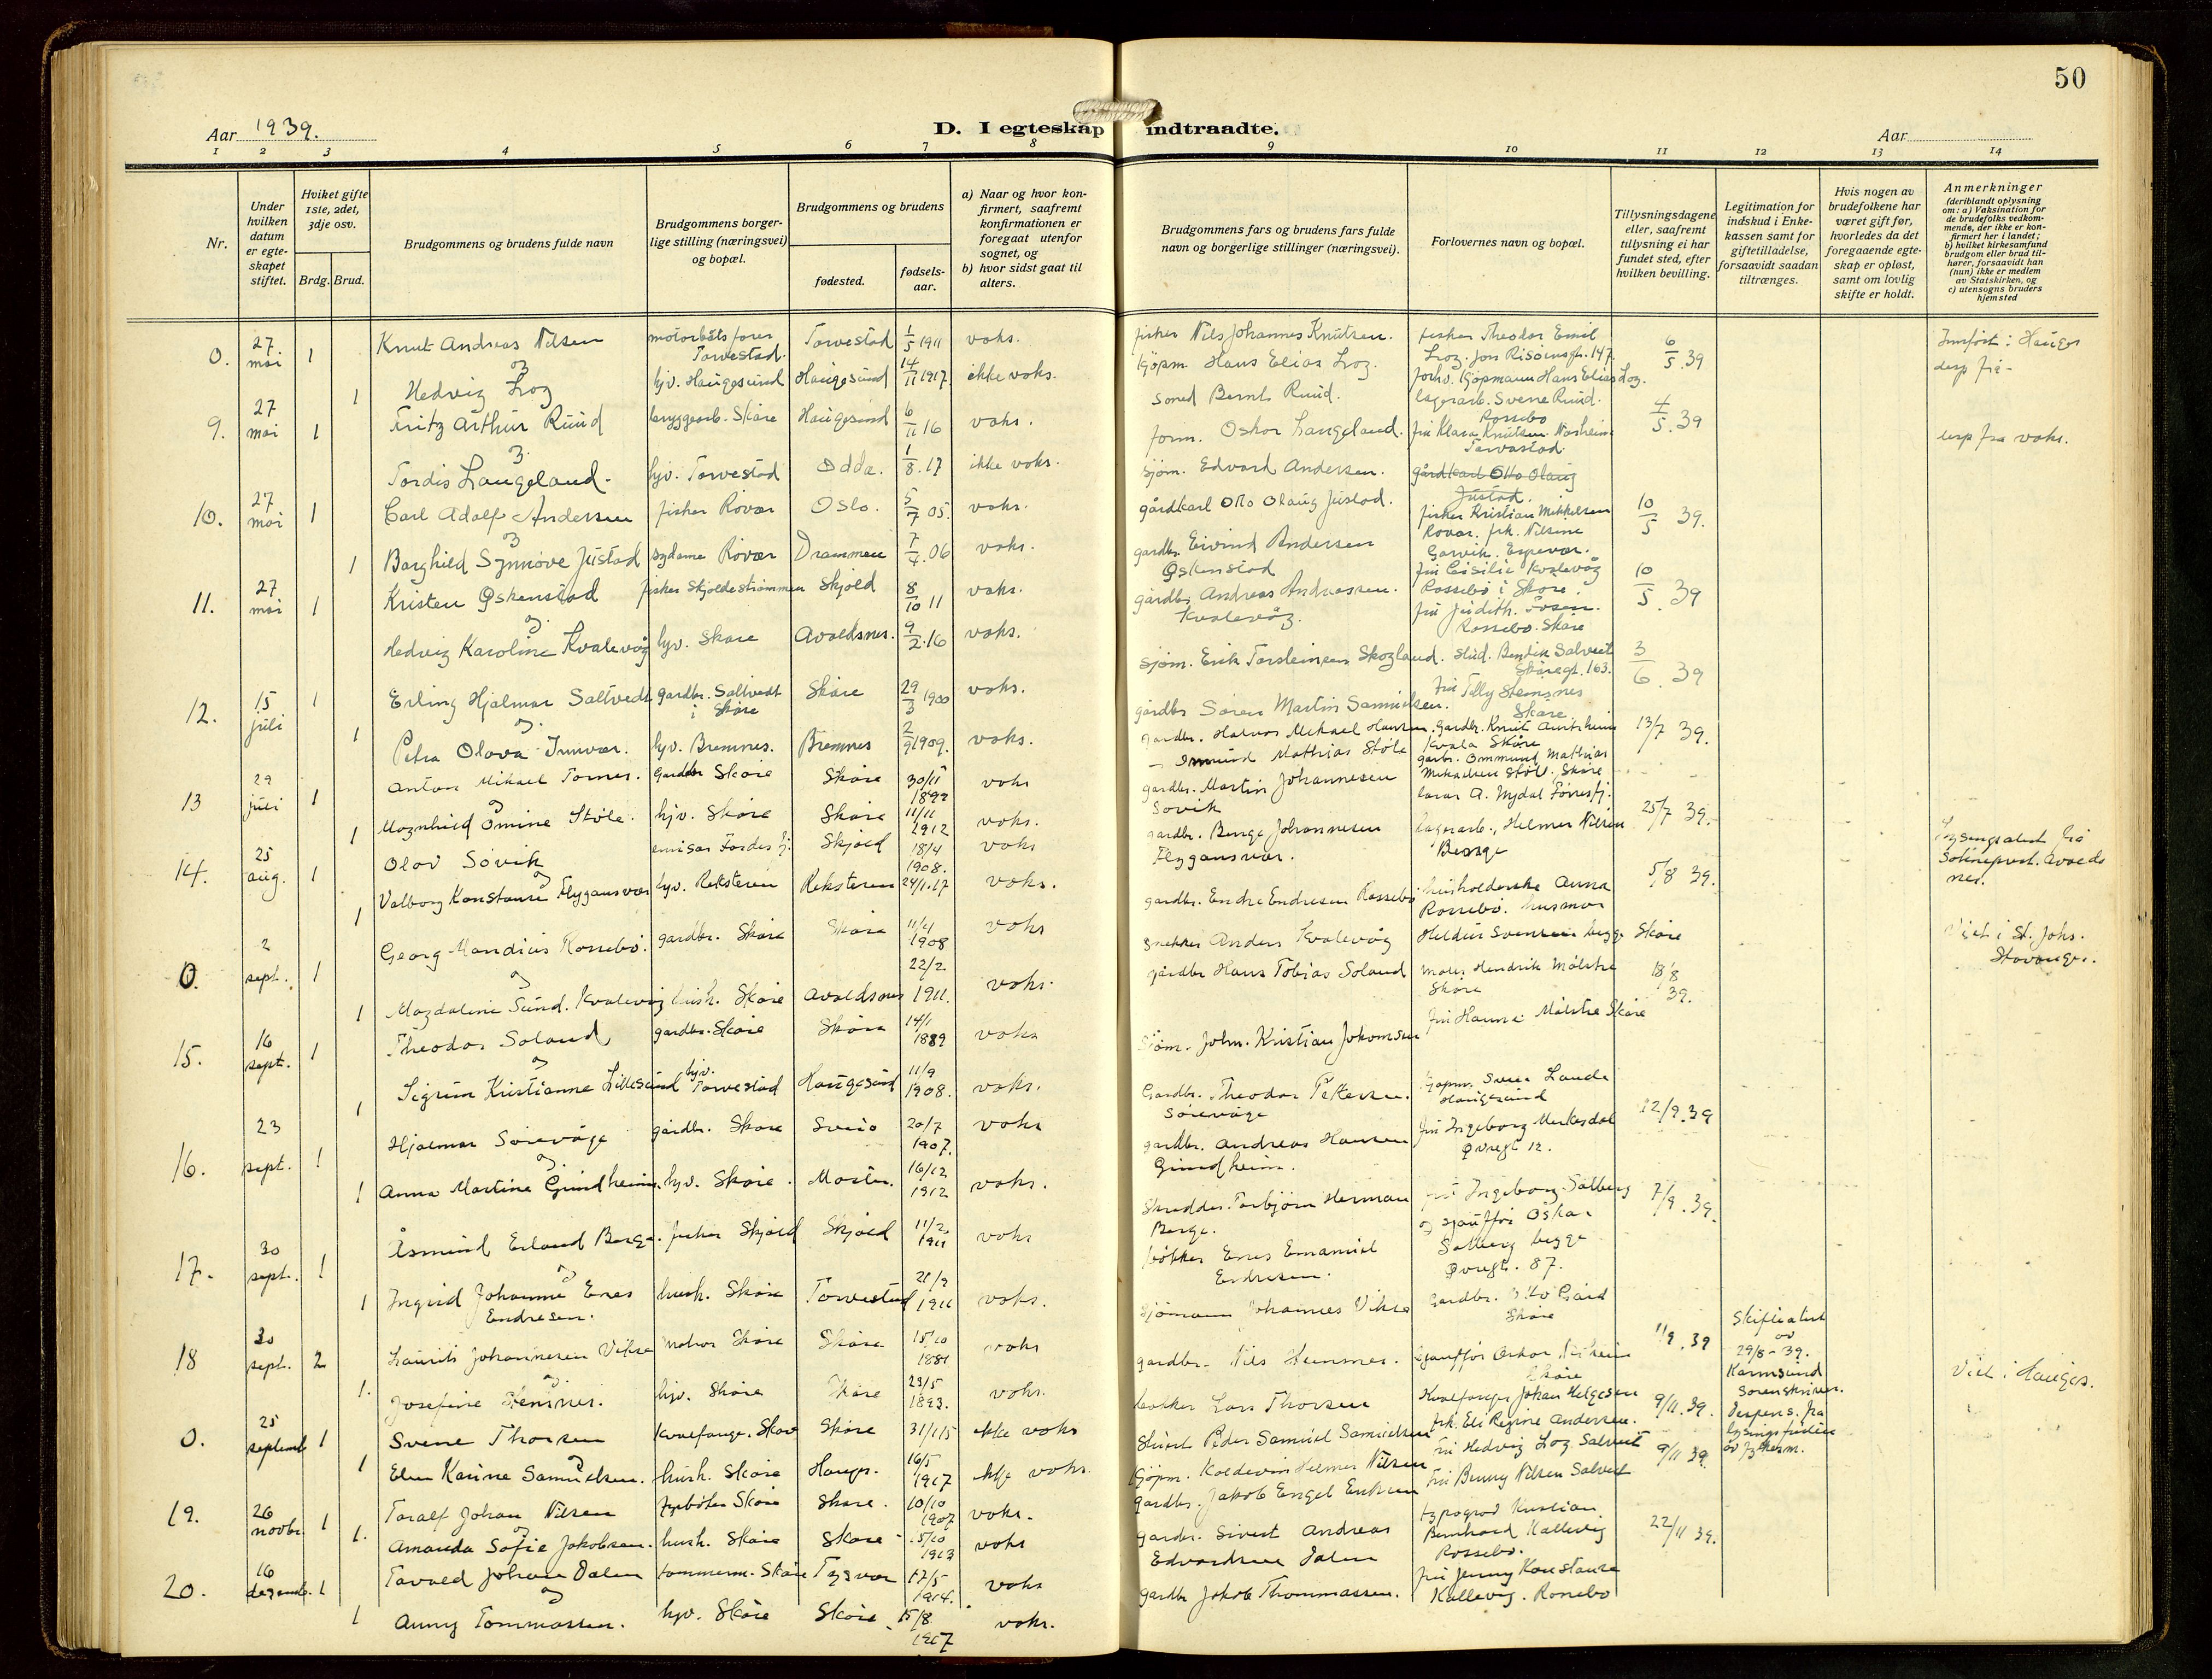 50
Aar 1939.
D. I egteskap indtraadte.
Aar
1 2 3 4 5 6 7 8 9 10 11 12 13 14
Nr.
Under hvilken datum er egteskapet stiftet.
Hviket gifte 1ste, 2det, 3dje osv.
Brdg. Brud.
Brudgommens og brudens fulde navn
Brudgommens borgerlige stilling (næringsvei) og bopæl.
Brudgommens og brudens
fødested.
fødselsaar.
a) Naar og hvor konfirmert, saafremt konfirmationen er foregaat utenfor sognet, og
b) hvor sidst gaat til alters.
Brudgommens fars og brudens fars fulde navn og borgerlige stillinger (næringsvei).
Forlovernes navn og bopæl.
Tillysningsdagene eller, saafremt tillysning ei har fundet sted, efter hvilken bevilling.
Legitimation for indskud i Enkekassen samt for giftetilladelse, forsaavidt saadan tiltrænges.
Hvis nogen av brudefolkene har været gift før, hvorledes da det foregaaende egteskap er opløst, samt om lovlig skifte er holdt.
Anmerkninger
(deriblandt oplysning om: a) Vaksination for de brudefolks vedkommende, der ikke er konfirmert her i landet;
b) hvilket kirkesamfund brudgom eller brud tilhører, forsaavidt han (hun) ikke er medlem av Statskirken, og
c) utensogns bruders hjemsted
0. 27 mai 1 Knut Andreas Nilsen motorbåtsfører Torvestad. Torvestad 1/5 1911 vaks. fisker Nils Johannes Knutsen. fisker Theodor Emil 6/5 39
1 Hedvig Log hjv. Haugesund Haugesund 14/11 1917 ikke vaks. kjøpm. Hans Elias Log. Kjøpmann Hans Elias Log.
9. 27 mai 1 Fritz Arthur Ruud bryggearb. Skåre Haugesund 6/11 16 vaks. Bernt Ruud. lagerarb. Sverre Ruud. Rossebø 4/5 39
Tordis Langeland. hjv. Torvestad Odda. 1/8 17 ikke vaks. form. Oskar Langeland. fru Klara Knutsen Norheim Torvastad
10. 27 mai 1 Carl Adolf Andersen fisker Røvær Oslo. 5/7 05. vaks. sjøm. Edvard Andersen. gårdkarl Otto Olaug Justad. 10/5 39.
1 Borghild Synnøve Justad sydame Røvær Drammen 7/4 06 vaks. gårdkarl Otto Olaug Justad. fisker Kristian Mikkelsen Røvær. frk. Nilsine Garvik. Espevær.
11. 27 mai 1 Kristen Øskenstad fisker Skjoldestrømmen Skjold 8/10 11 vaks. gardbr. Eivind Andersen Øskenstad fru Cesilie Kvalevåg Rossebø i Skåre. 10/5 39
Hedvig Karoline Kvalevåg hjv. Skåre Avaldsnes. 9/2 16 vaks. gårdbr. Andreas Andreassen. Kvalevåg. fru Judith Rossebø. Skåre
12. 15 juli 1 Erling Hjalmar Saltvedt gardbr. Saltvedt i Skåre Skåre 29/3 1900 vaks. sjøm. Erik Torsteinsen Skogland. stud. Bendik Salvedt Skåregt. 163. 3/6 39
1 Petra Olava Innvær. hjv. Bremnes. Bremnes 2/9 1909. vaks. gardbr Søren Martin Samuelsen. fru Tilly Skåre
13 29 juli 1 Anton Mikael Tornes. gardbr Skåre Skåre 30/11 1899 vaks gardbr. Mikael Hansen. Gardbr. Knut Kvala Skåre 13/7 39.
1 Magnhild Omine Støle. hjv. Skåre Skåre 11/11 1912 vaks. Mathias Støle gardbr. Ommund Mathias Støl. Skåre
14. 25 aug. 1 Olav Søvik Skjold 18/4 1908. vaks gardbr. Martin Johannesen Søvik lærer A. Mydal 25/7 39.
1 Valborg Konstanse Flygansvær hjv. Reksteren Reksteren 24/1.17 vaks. gardbr. Johannesen Flygansvær. lagerarb., Helmer Nilsen
0. 2 sept. 1 Georg Mandius Rossebø. gardbr. Skåre Skåre 11/4 1908 vaks gardbr. Endre Endresen Rossebø husholderske Anna Rossebø. husmor 5/8 39.
1 Magdaline Sund. Kvalevåg hush. Skåre Avaldsnes 22/2. 1911. vaks. snekker Anders Kvalevåg Svensen begge Skåre
15. 16 sept. 1 Theodor Soland gardbr. Skåre Skåre 14/1 1889 vaks gårdbr Hans Tobias Soland maler Hendrik Målstre Skåre 18/8 39.
1 Sigrun Kristianne Lillesund hjv. Torvestad Haugesund 11/9 1908. vaks. sjøm. John. Kristian fru Hanna Målstre Skåre
16. 23 sept. 1 Hjalmar Sørevåge gårdbr. Skåre Sveio 20/7 1907. vaks Gardbr. Theodor Pettersen. Sørevåge Haugesund 12/9.39
1 Anna Martine Grindheim hjv. Skåre. Moster. 16/12 1912 vaks. gardbr. Andreas Hansen Grindheim. fru Ingeborg Øvregt 12.
17. 30 sept. 1 Åsmund Erland Berge. fisker Skjold Skjold 11/2 1911 vaks Skredder. Torbjørn Herman Berge. Ingeborg Salberg og sjauffør Oskar Salberg begge Øvregt. 87. 7/9.39.
1 Ingrid Johanne Enes Endresen. hush. Skåre Torvestad 21/9 1911 vaks. bøkker Enes Emanuel Endresen.
18 30 sept. 2 Laurits Johannesen Vikse Skåre Skåre 15/10 1881 vaks Sjømann Johannes Vikse Gardbr. Skåre 11/9.39 Skifteatest av 29/8-39. Karmsund Sorenskriver.
1. Josefine hjv. Skåre Skåre 23/5 1893. vaks. gardbr. Nils sjauffør Oskar Skåre
0. 25 septemb 1 Sverre Thorsen Kvalfanger. Skåre Skåre 31/1 15 ikke vaks bøkker Lars Thorsen Kvalfanger Johan Helgesen frk. Eli Regine Andersen. 9/11.39. Dispens. fra Viet i Hauges.
1 Elen Karine Samuelsen. hush. Skåre Hauges. 16/5 1917 ikke vaks. Peder Samuel Samuelsen
19. 26 novbr. 1 Toralf Johan Nilsen Skåre Skåre. 10/10 1907 vaks. Kjøpm. Koldevin Helmer Nilsen fru Hedvig Log Salvedt 9/11 39.
1. Amanda Sofie Jakobsen. hush. Skåre Skåre vaks gardbr. Jakob Engel fru Benny Nilsen Salvedt
20. 16 desemb. 1 Torvald Johan Dalen tømmerm. Skåre Tysvær 17/5 1914. vaks gardbr. Sivert Andreas Edvardsen Dalen typograf Kristian Bernhard Kallevig Rossebø. 22/11 39.
1 Anny Tommassen. hjv. Skåre Skåre. 15/8 1917 vaks. gardbr Jakob Thommassen. fru Jenny Konstanse Kallevig. Rossebø
Innført i Hauges
desp fra vaks.
Viet i St. Johs. Stavanger.